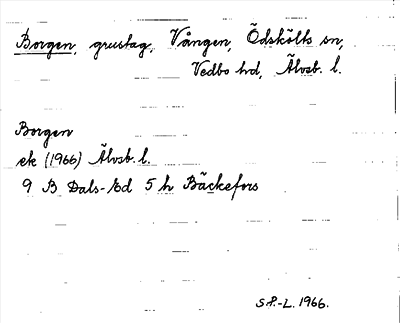 Borgen, grustag, Vången, Ödskölts sn,
Vedbo hd, Älvsb. l.
Borgen
ek (1966) Älvsb. l.
9 B Dals-Ed 5 h Bäckefors
SP.-L. 1966.